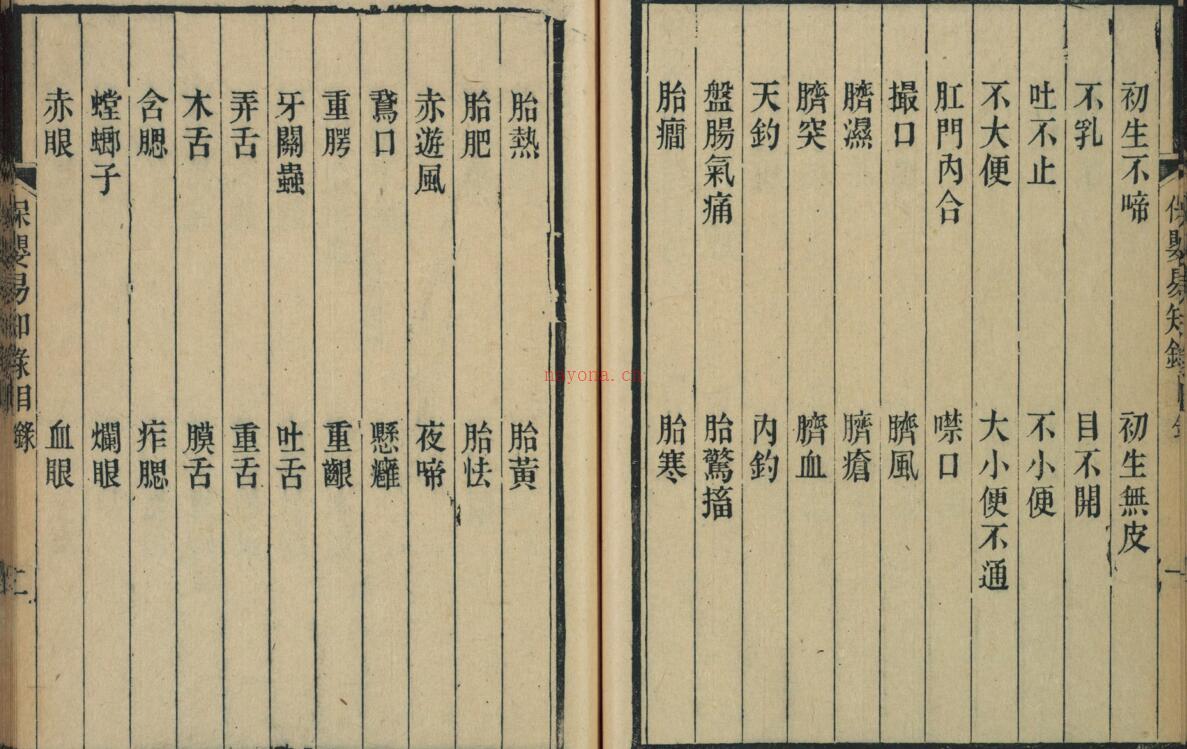 初生不啼 初生無皮
不乳 目不開
吐不止 不小便
不大便 大小便不通
肛門內合 噤口
撮口 臍風
臍濕 臍瘡
臍突 臍血
天釣 內釣
盤腸氣痛 胎驚搐
胎癎 胎寒
胎熱 胎黃
胎肥 胎怯
赤遊風 夜啼
鵞口 懸癰
重腭 重齦
牙關蟲 吐舌
弄舌 重舌
木舌 膜舌
含腮 痄腮
螳螂子 爛眼
赤眼 血眼
保嬰易知錄目錄 二
保嬰易知錄目錄 一
nayona.cn